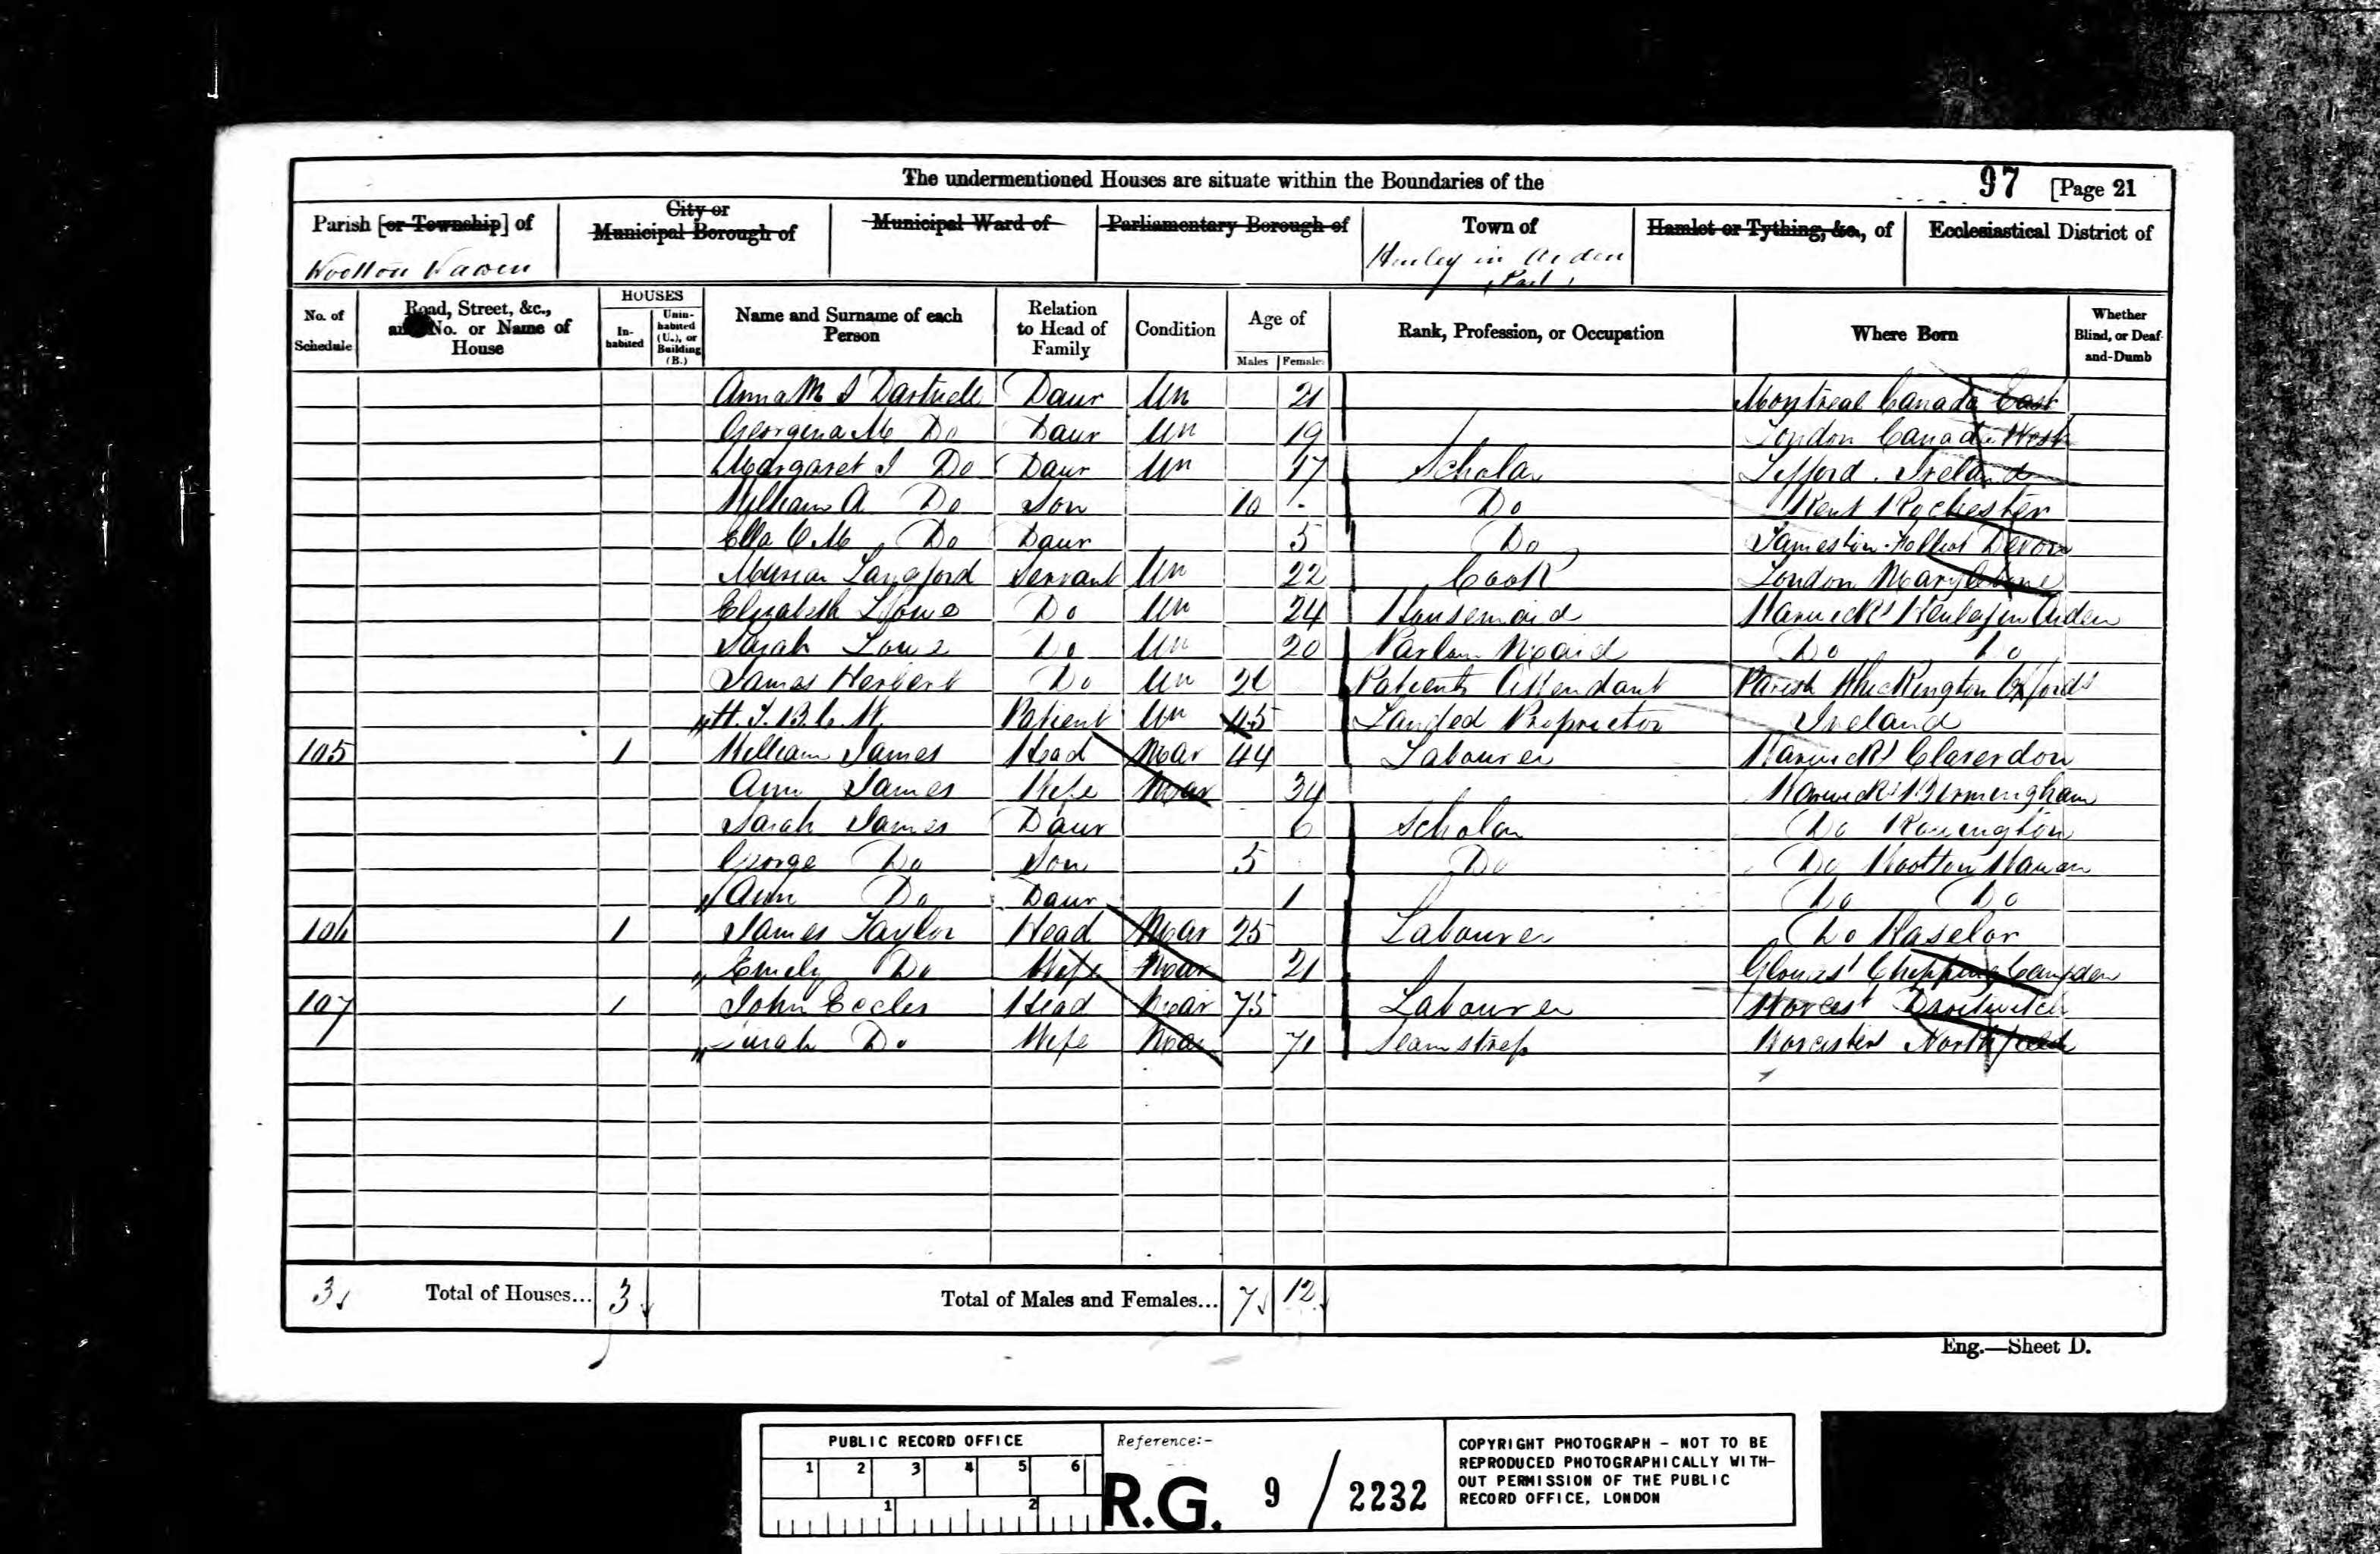 The undermentioned Houses are situate within the Boundaries of the 97 [Page 21
Parish [or Township] of City or Municipal Borough of Municipal Ward of Parliamentary Borough of Town of Hamlet or Tything, &c., of Ecclesiastical District of
Wootton Wawen Henley in Arden
Part
No. of Schedule Road, Street, &c., and No. or Name of House HOUSES In-habited Unin-habited (U.), or Building (B.) Name and Surname of each Person Relation to Head of Family Condition Age of Males Females Rank, Profession, or Occupation Where Born Whether Blind, or Deaf-and-Dumb
Anna M S Dartnell Daur Un 21 Montreal Canada East
Georgina M Do Daur Un 19 London Canada West
Margaret I Do Daur Un 17 Scholar Lifford. Ireland
William A Do Son 10 Do Kent Rochester
Ella C M Do Daur 5 Do Devon
Langford Servant Un 22 Cook London Marylebone
Elizabeth Lowe Do Un 24 Housemaid Warwicks Henley in Arden
Sarah Lowe Do Un 20 Parlour Maid Do Do
James Herbert Do Un Patients Attendant Parish Oxfords
H. Patient Un 45 Landed Proprietor Ireland
105 1 William James Head Mar 44 Labourer Warwicks Claverdon
Ann James Wife Mar 34 Warwicks Birmingham
Sarah James Daur 6 Scholar Do Rowington
George Do Son 5 Do Do Wootton Wawen
Ann Do Daur 1 Do Do
106 1 James Taylor Head Mar 25 Labourer Do Haselor
Emily Do Wife Mar 21 Chipping Campden
107 1 John Eccles Head Mar 75 Labourer Worcest Droitwich
Sarah Do Wife Mar 71 Seamstress Northfield
3 Total of Houses... 3 Total of Males and Females... 7 12
Eng.—Sheet D.
PUBLIC RECORD OFFICE
1 2 3 4 5 6
1 2
Reference:-
R.G. 9 / 2232
COPYRIGHT PHOTOGRAPH - NOT TO BE
REPRODUCED PHOTOGRAPHICALLY WITH-
OUT PERMISSION OF THE PUBLIC
RECORD OFFICE, LONDON